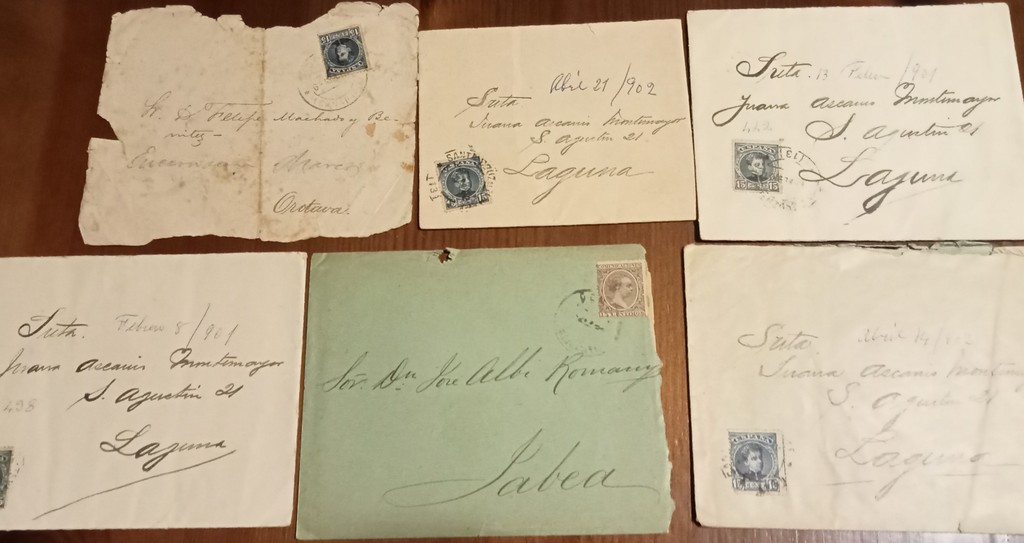 Sr. D. Felipe Machado y Be-
nites -
Marcos
Orotava.
Abril 21/902
Srita
Juana Ascanio Montemayor
S. Agustin 21
Laguna
ESPAÑA
Srita. 13 Febrero/901
Juana Ascanio Montemayor
442
S. Agustin 21
Laguna
ESPAÑA
15 15
Srita. Febrero 8/901
Juana Ascanio Montemayor
498
S. Agustin 21
Laguna
Sor. Dn. Jose Albi Romany
Jabea
Srita. Abril 14/
Juana Ascanio Montemayor
S. Agustin 21
Laguna
ESPAÑA